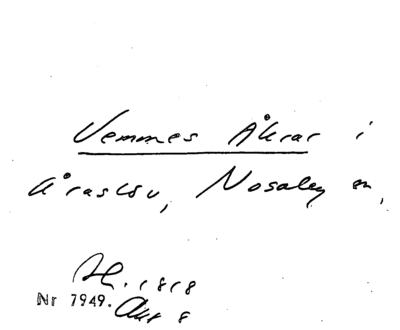 Vemmes Åkrar i
Araslöv, Nosaby sn,
Sk. 1818
Nr 7949. Akt 8